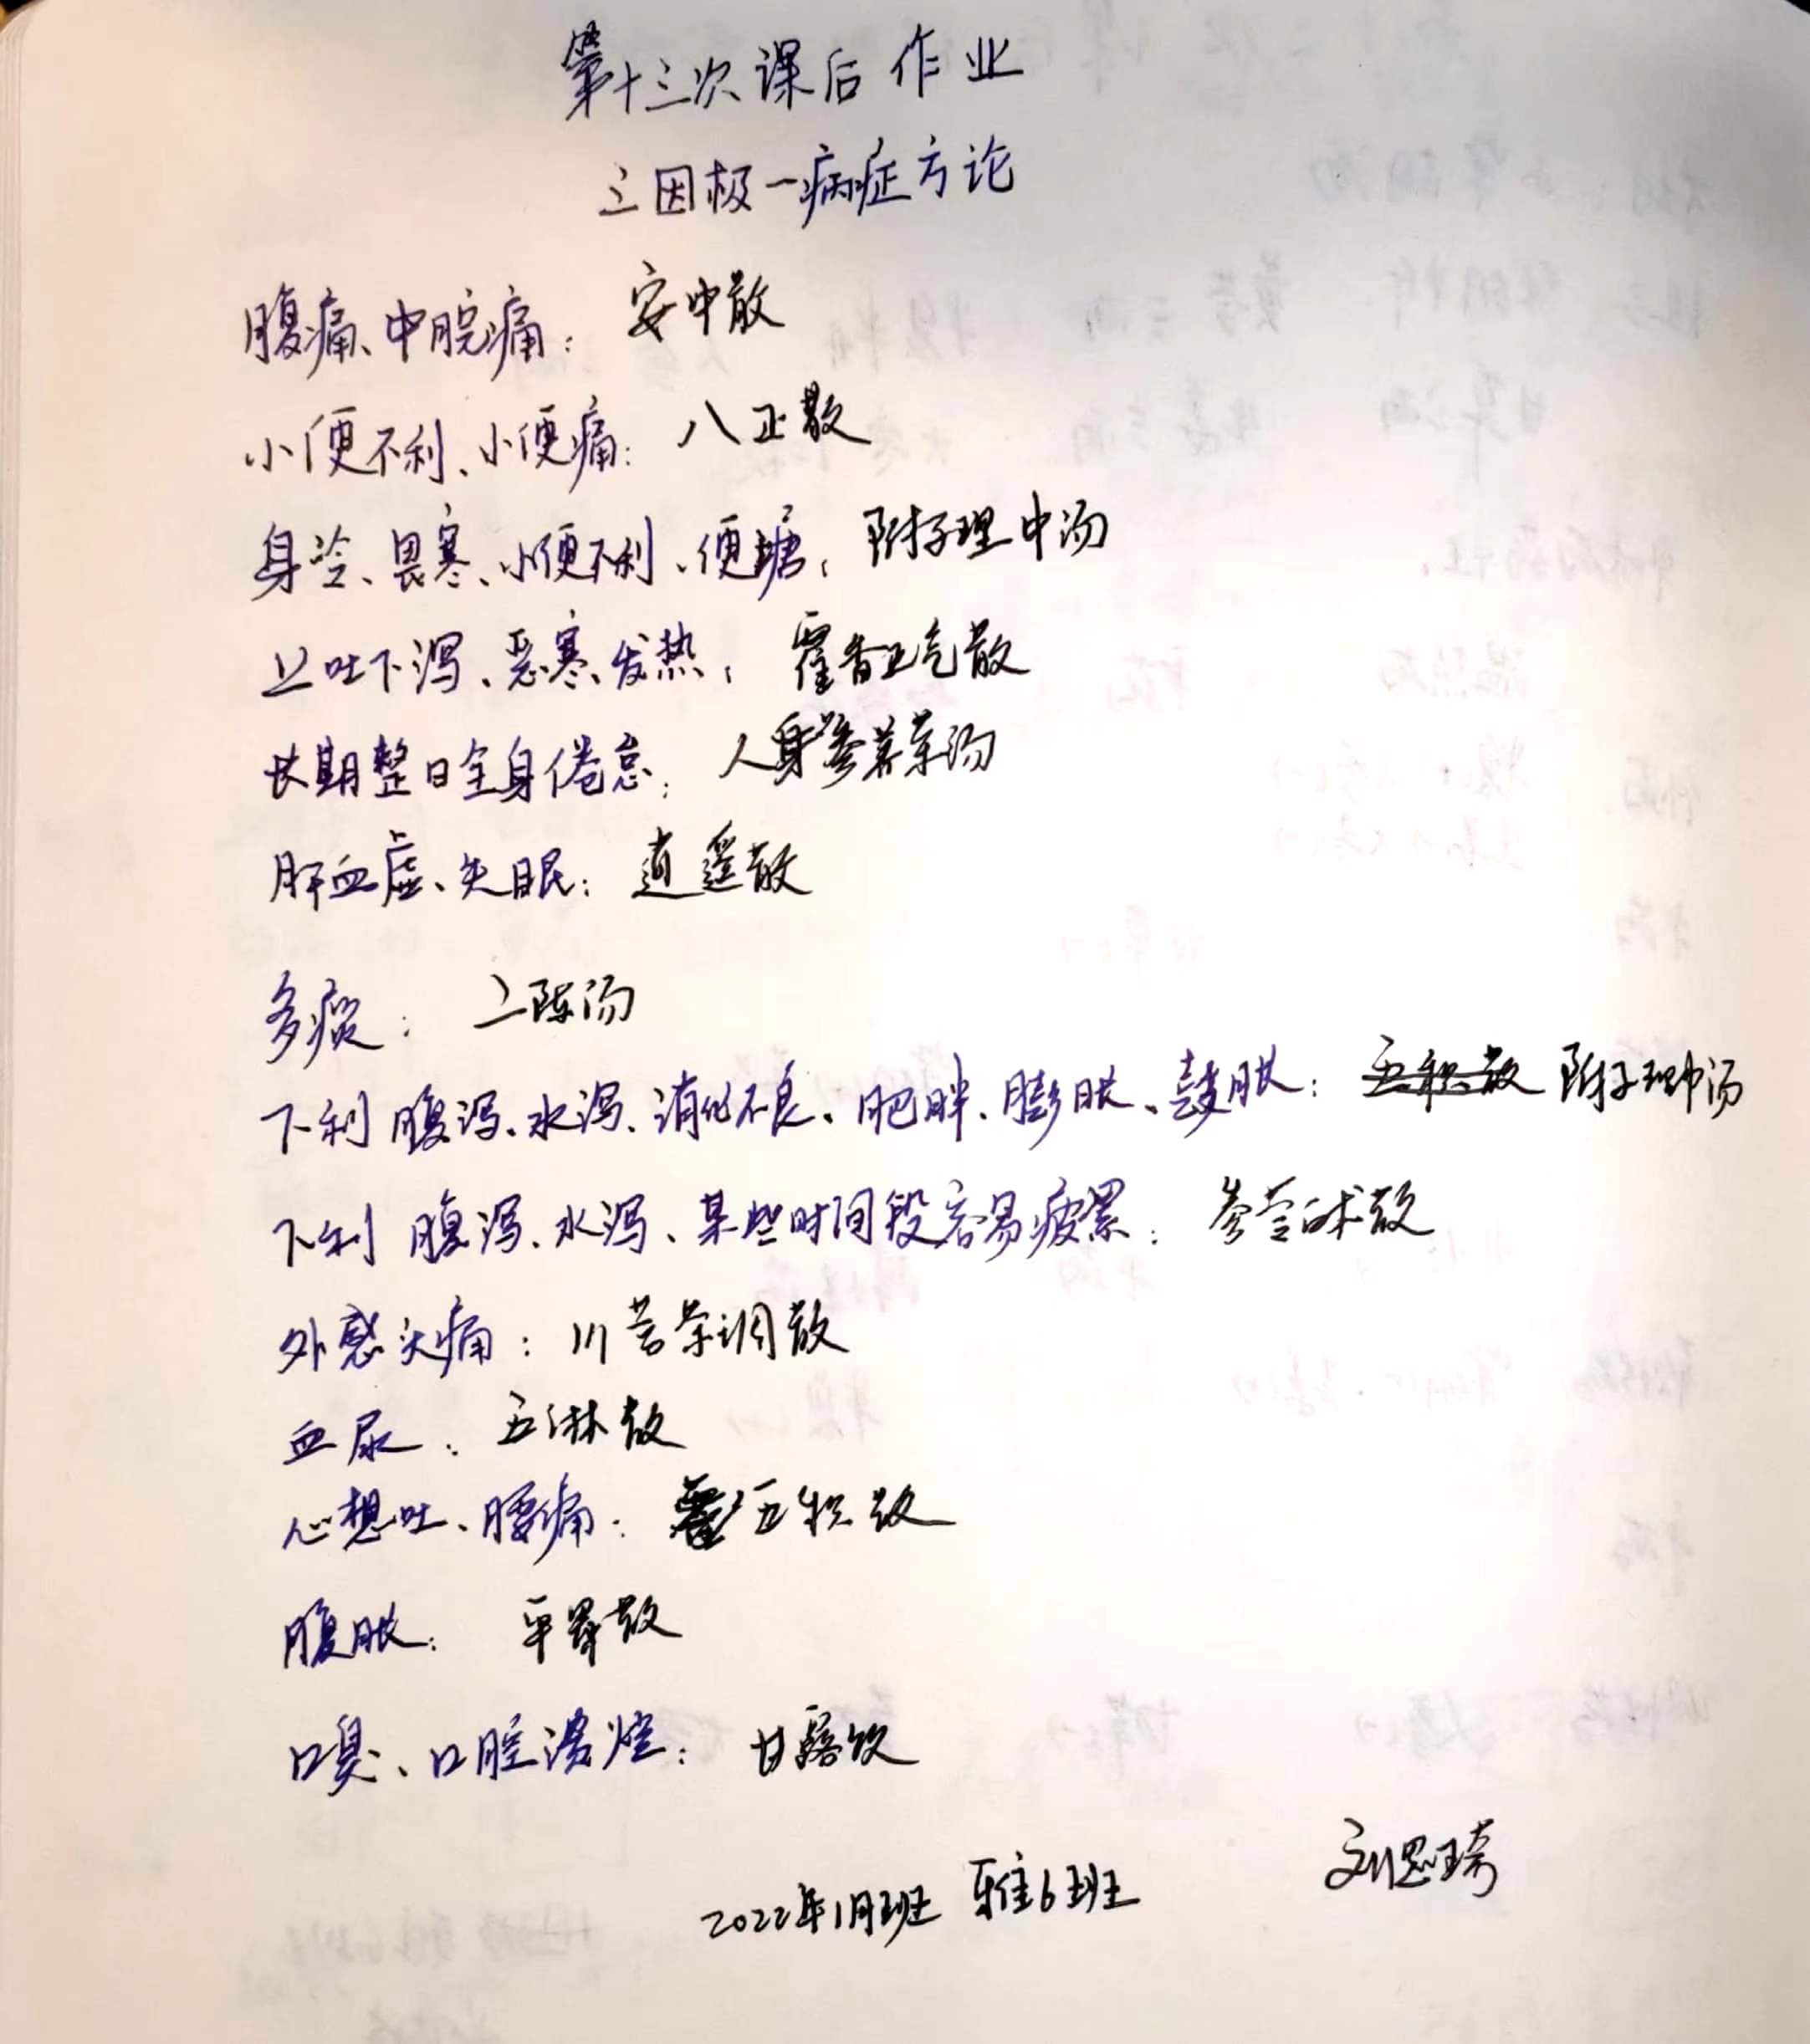 第十三次课后作业
三因极一病症方论
腹痛、中脘痛：安中散
小便不利、小便痛：八正散
身冷、畏寒、小便不利、便塘：附子理中汤
上吐下泻、恶寒发热：霍香正气散
长期整日全身倦怠：人身参养荣汤
肝血虚、失眠：逍遥散
多痰：二陈汤
下利 腹泻、水泻、消化不良、肥胖、膨胀、鼓胀：五积散 附子理中汤
下利 腹泻、水泻、某些时间段容易疲累：参苓白术散
外感头痛：川芎茶调散
血尿：五淋散
心想吐、腰痛：五积散
腹胀：平胃散
口臭、口腔溃烂：甘露饮
2022年1月班 雅6班 刘思琦